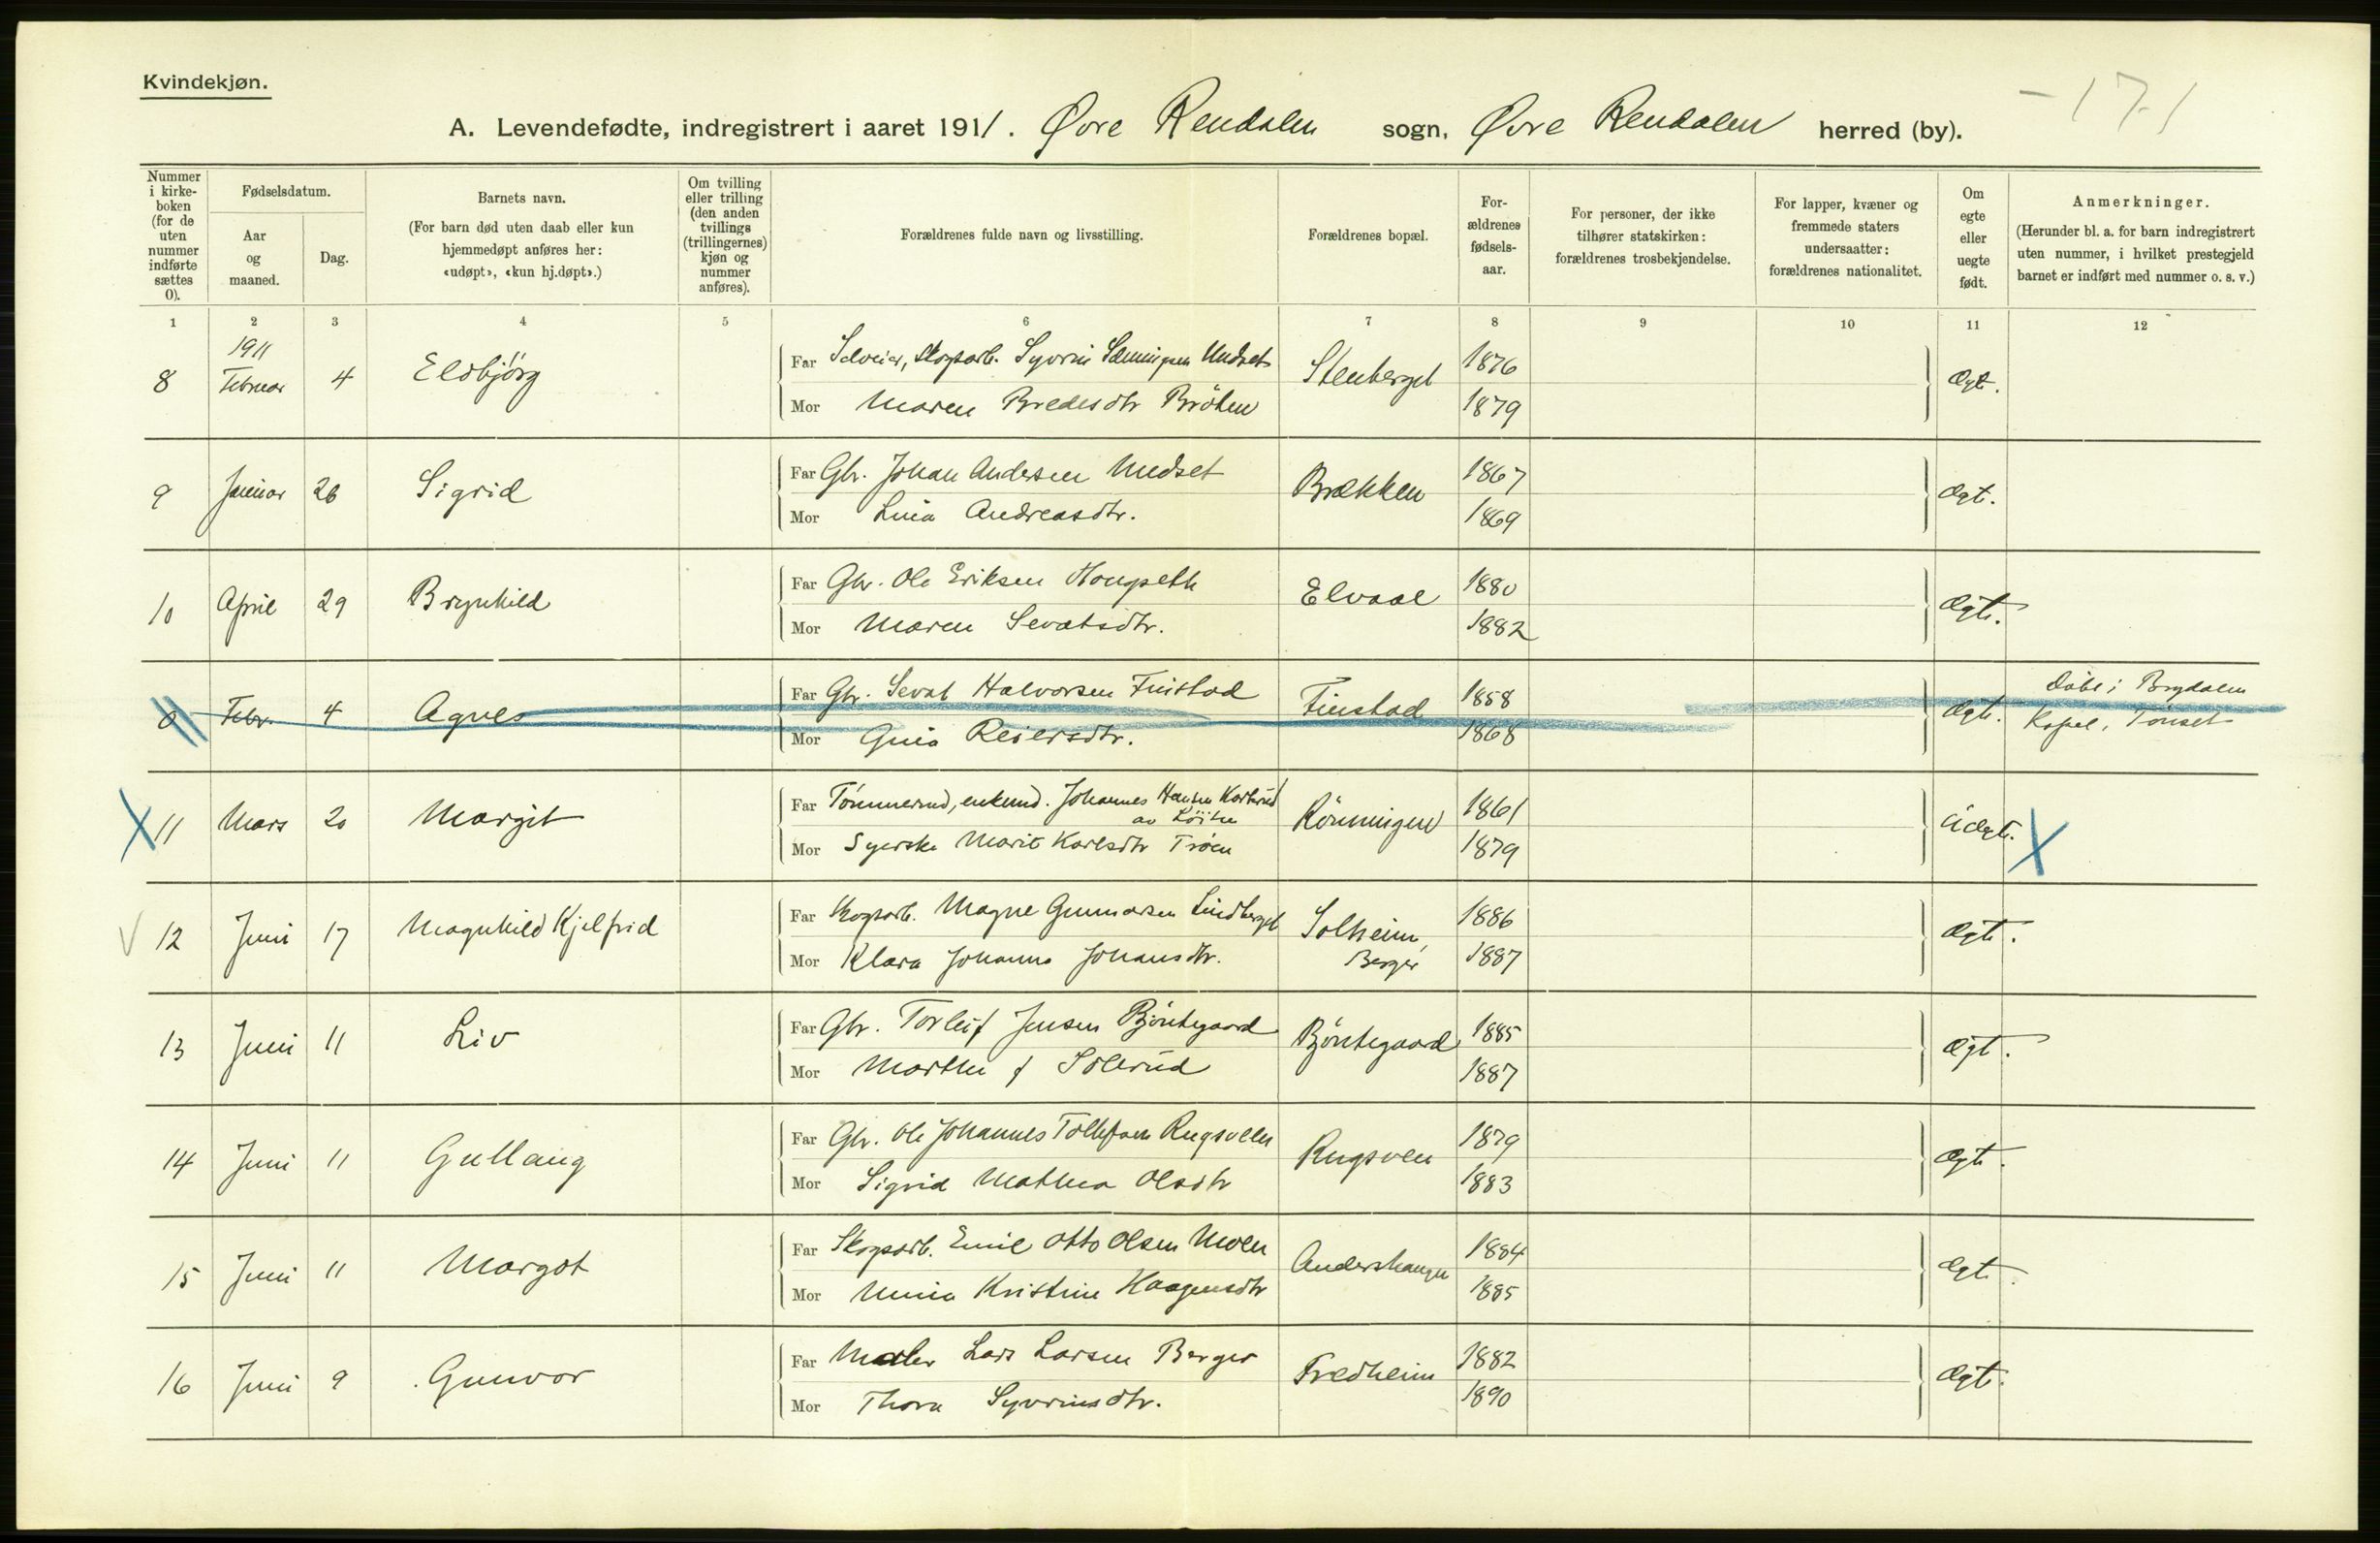 Kvindekjøn.
- 171
A. Levendefødte, indregistrert i aaret 1911. Øvre Rendalen sogn, Øvre Rendalen herred (by).
Nummer i kirke-boken (for de uten nummer indførte sættes 0).
Fødselsdatum.
Aar og maaned.
Dag.
Barnets navn.
(For barn død uten daab eller kun hjemmedøpt anføres her: «udøpt», «kun hj.døpt».)
Om tvilling eller trilling (den anden tvillings (trillingernes) kjøn og nummer anføres).
Forældrenes fulde navn og livsstilling.
Forældrenes bopæl.
For-ældrenes fødsels-aar.
For personer, der ikke tilhører statskirken: forældrenes trosbekjendelse.
For lapper, kvæner og fremmede staters undersaatter: forældrenes nationalitet.
Om egte eller uegte født.
Anmerkninger.
(Herunder bl. a. for barn indregistrert uten nummer, i hvilket prestegjeld barnet er indført med nummer o. s. v.)
1 2 3 4 5 6 7 8 9 10 11 12
1911
8 Februar 4 Eldbjörg Far Selveier, Skogsarb. Syvrin Undset Stenberget 1876 Ægt.
Mor Maren Bredesdtr Bröten 1879
9 Januar 26 Sigrid Far Gbr. Johan Andersen Undset Brækken 1867 Ægt.
Mor Lina Andreasdtr. 1869
10 April 29 Brynhild Far Gbr. Ole Eriksen Haugseth Elvaal 1880 Ægt.
Mor Maren Sevatsdtr. 1882
0 Febr. 4 Agnes Far Gbr. Sevat Halvorsen Finstad Finstad 1858 Ægt. Döbt i Brydalen
Mor Gina Reiersdtr. 1868 Kapel, Tönset
X 11 Mars 20 Margit Far Tömmermd, enkemd. Johannes Hansen
av Löiten Rönningen 1861 Uægt. X
Mor Syerske Marit Karlsdtr Tröen 1879
V 12 Juni 17 Magnhild Kjelfrid Far Skogsarb. Magne Gunnarsen Lindberget Solheim, 1886 Ægt.
Mor Klara Johanna Johansdtr. Berger 1887
13 Juni 11 Liv Far Gbr. Torleif Jensen Björntegaard Björntegaard 1885 Ægt.
Mor Marthe f Sölerud 1887
14 Juni 11 Gullaug Far Gbr. Ole Johannes Tollefsen Rugsveen Rugsveen 1879 Ægt.
Mor Sigrid Mathea Olsdtr 1883
15 Juni 11 Margot Far Skogsarb. Emil Otto Olsen Moen Andershaugen 1884 Ægt.
Mor Mina Kristine Haagensdtr 1885
16 Juni 9 Gunvor Far Maler Lars Larsen Berger Fredheim 1882 Ægt.
Mor Thora Syvrinsdtr. 1890